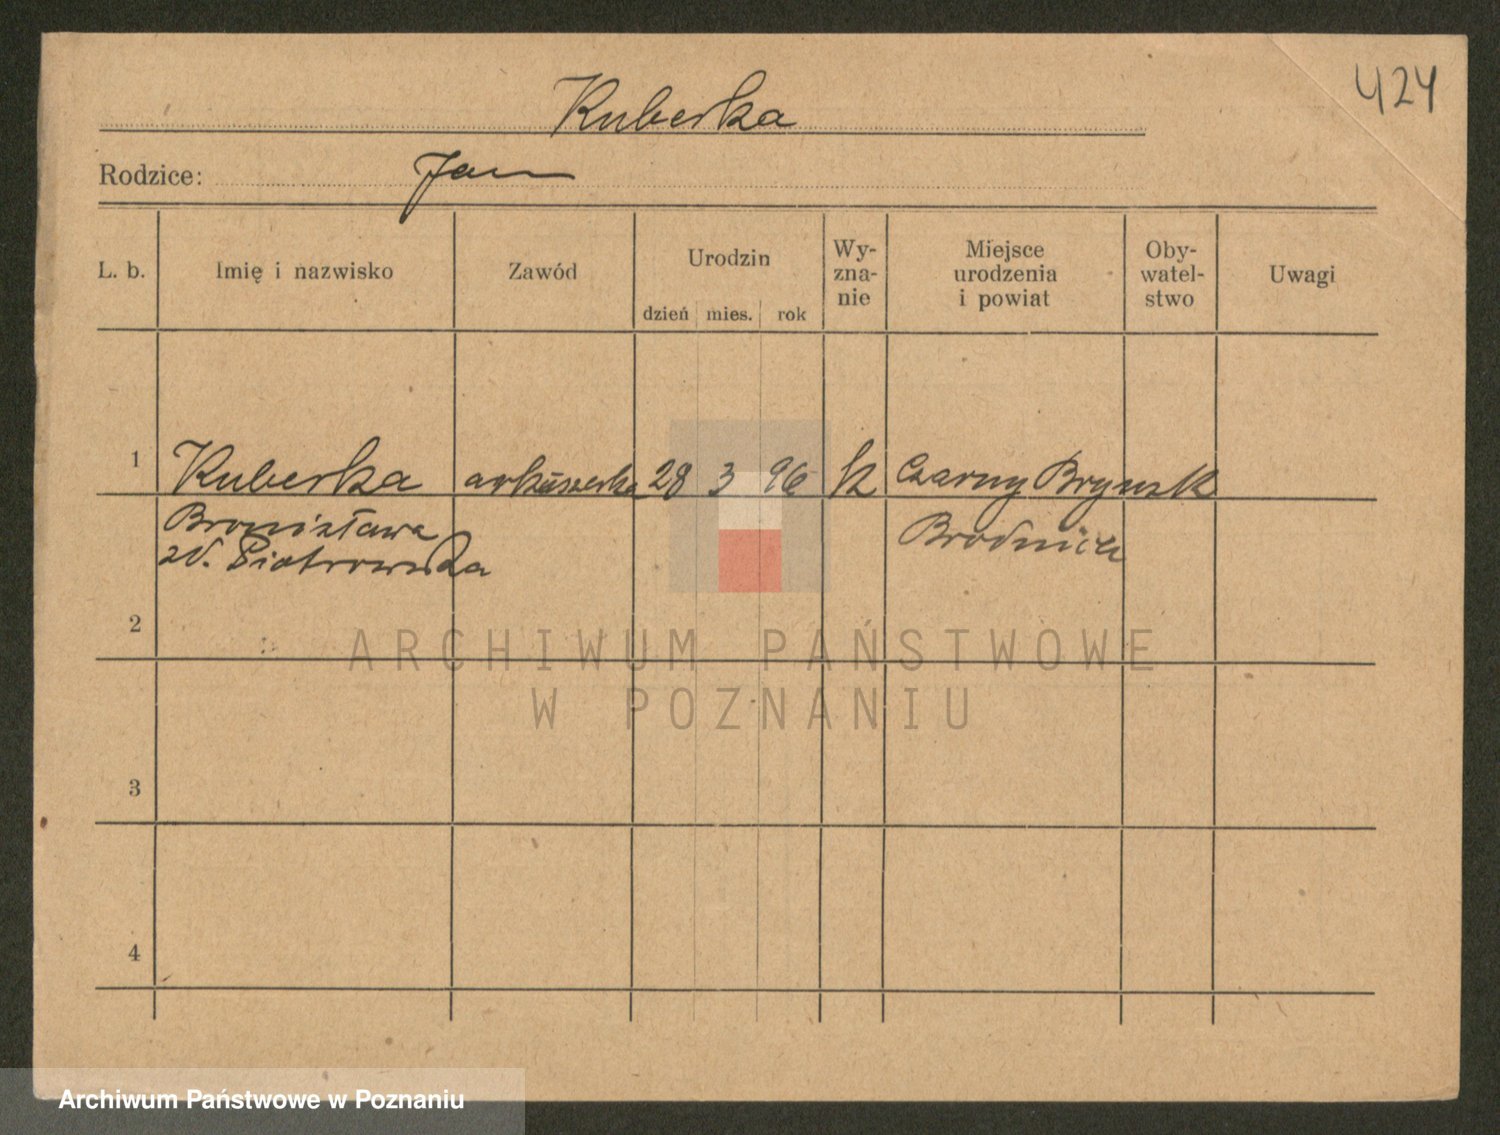 424
Kuberka
Rodzice: Jan
L. b. Imię i nazwisko Zawód Urodzin dzień mies. rok Wy-zna-nie Miejsce urodzenia i powiat Oby-watel-stwo Uwagi
1 Kuberka akuszerka 28 3 96 k Czarny Brynsk
Bronisława Brodnica
zd. Piotrowska
2
ARCHIWUM PAŃSTWOWE
W POZNANIU
3
4
Archiwum Państwowe w Poznaniu